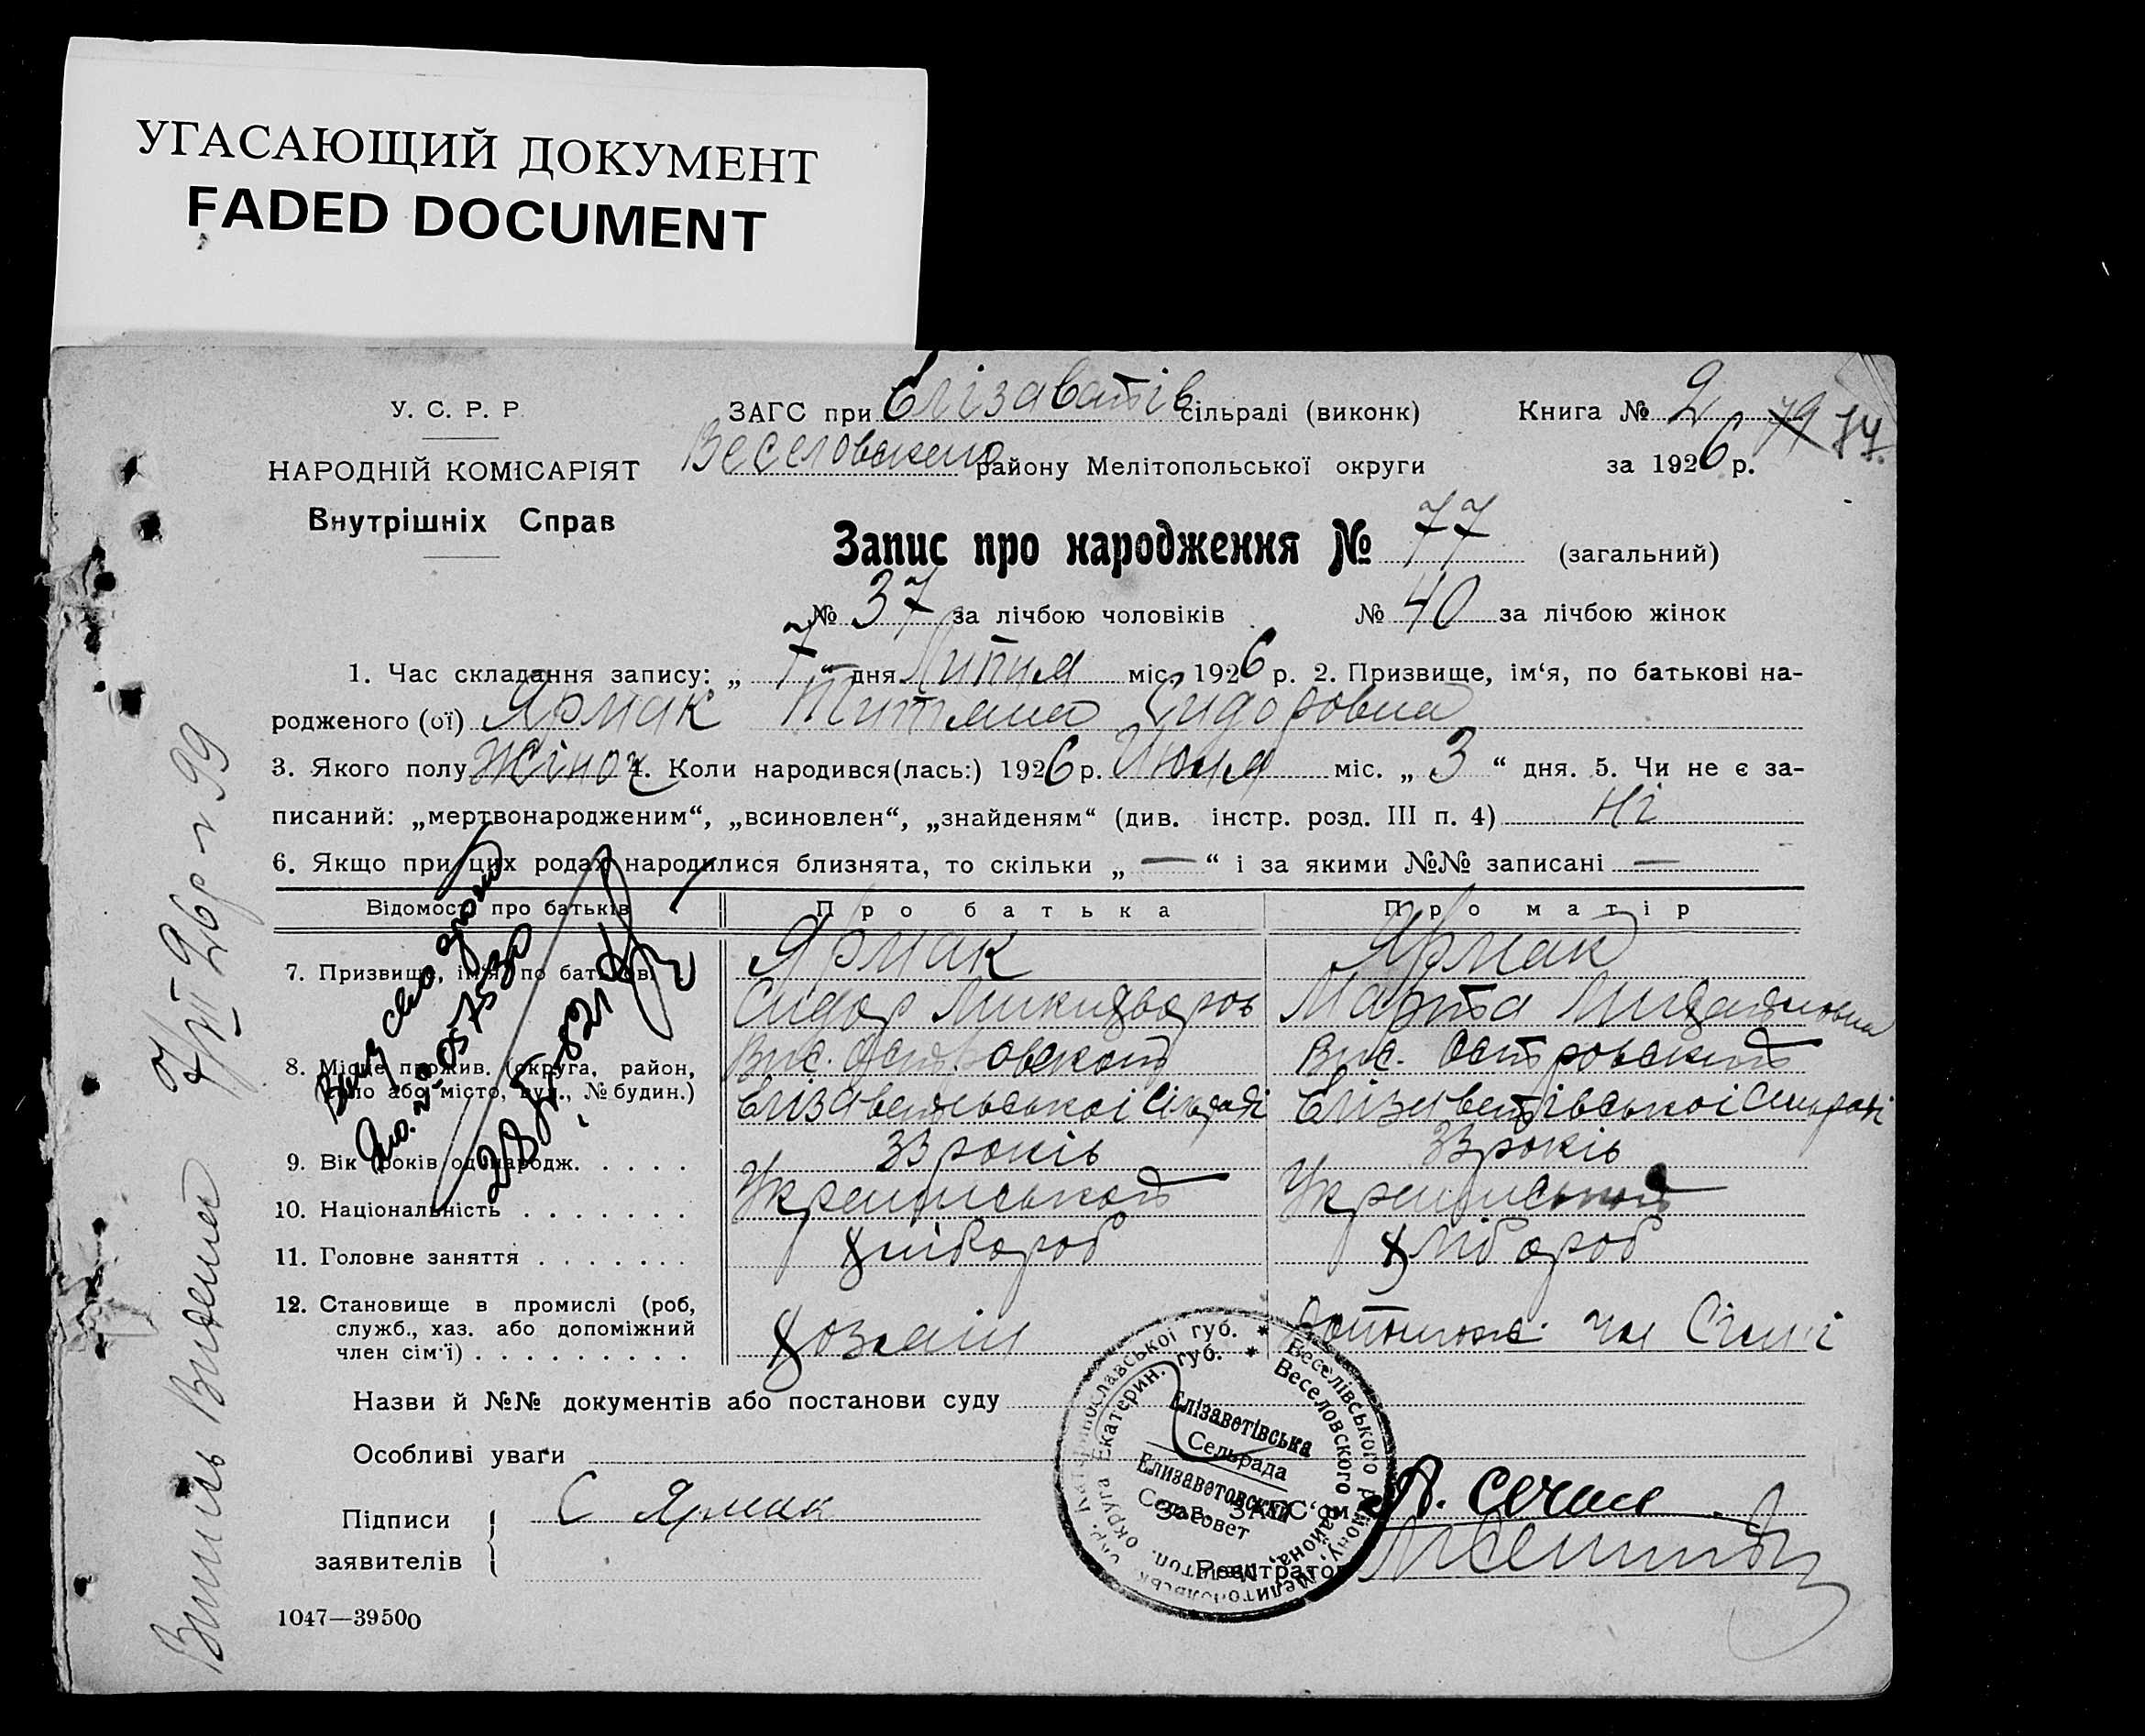 УГАСАЮЩИЙ ДОКУМЕНТ
FADED DOCUMENT
У. С. Р. Р.
НАРОДНІЙ КОМІСАРІЯТ
Внутрішніх Справ
ЗАГС при Єлізаватів сільраді (виконк)
Веселовского району Мелітопольської округи
Книга № 2 79 74
за 1926 р.
Запис про народження № 77 (загальний)
№ 37 за лічбою чоловіків № 40 за лічбою жінок
1. Час складання запису: „ 7 “ дня Липня міс. 1926 р. 2. Призвище, ім‘я, по батькові на-
родженого (ої) Ярмак Титяна Сидоровна
3. Якого полу Жіноч 4. Коли народився(лась:) 1926 р. Июля міс. „ 3 “ дня. 5. Чи не є за-
писаний: „мертвонародженим“, „всиновлен“, „знайденям“ (див. інстр. розд. III п. 4) Ні
6. Якщо при цих родах народилися близнята, то скільки „ — “ і за якими №№ записані —
Відомості про батьків Про батька Про матір
7. Призвище, ім‘я, по батькові Ярмак Ярмак
Сидор Марта
8. Місце прожив. (округа, район, Вис. Островский Вис. Островский
село або місто, вул., № будин.) Єлізаветівської Сільраді Єлізаветівської Сільраді
9. Вік (років од народж. . . . . 33 років 33 років
10. Національність . . . . . . . Украинський Украинський
11. Головне заняття . . . . . . . хлібороб хлібороб
12. Становище в промислі (роб,
служб., хаз. або допоміжний
член сім‘ї) . . . . . . . . . Хозяин Допоміж. чл Сімї
Назви й №№ документів або постанови суду
Особливі уваги
Підписи
заявителів
С Ярмак
Зав. ЗАГС‘ом
Реєстратор
Єлізаветівська
Сельрада
Елизаветовский
Сельсовет
Веселівського району,
Веселовского района,
Екатерин. губ.
1047—39500
7/VII 26 р № 99